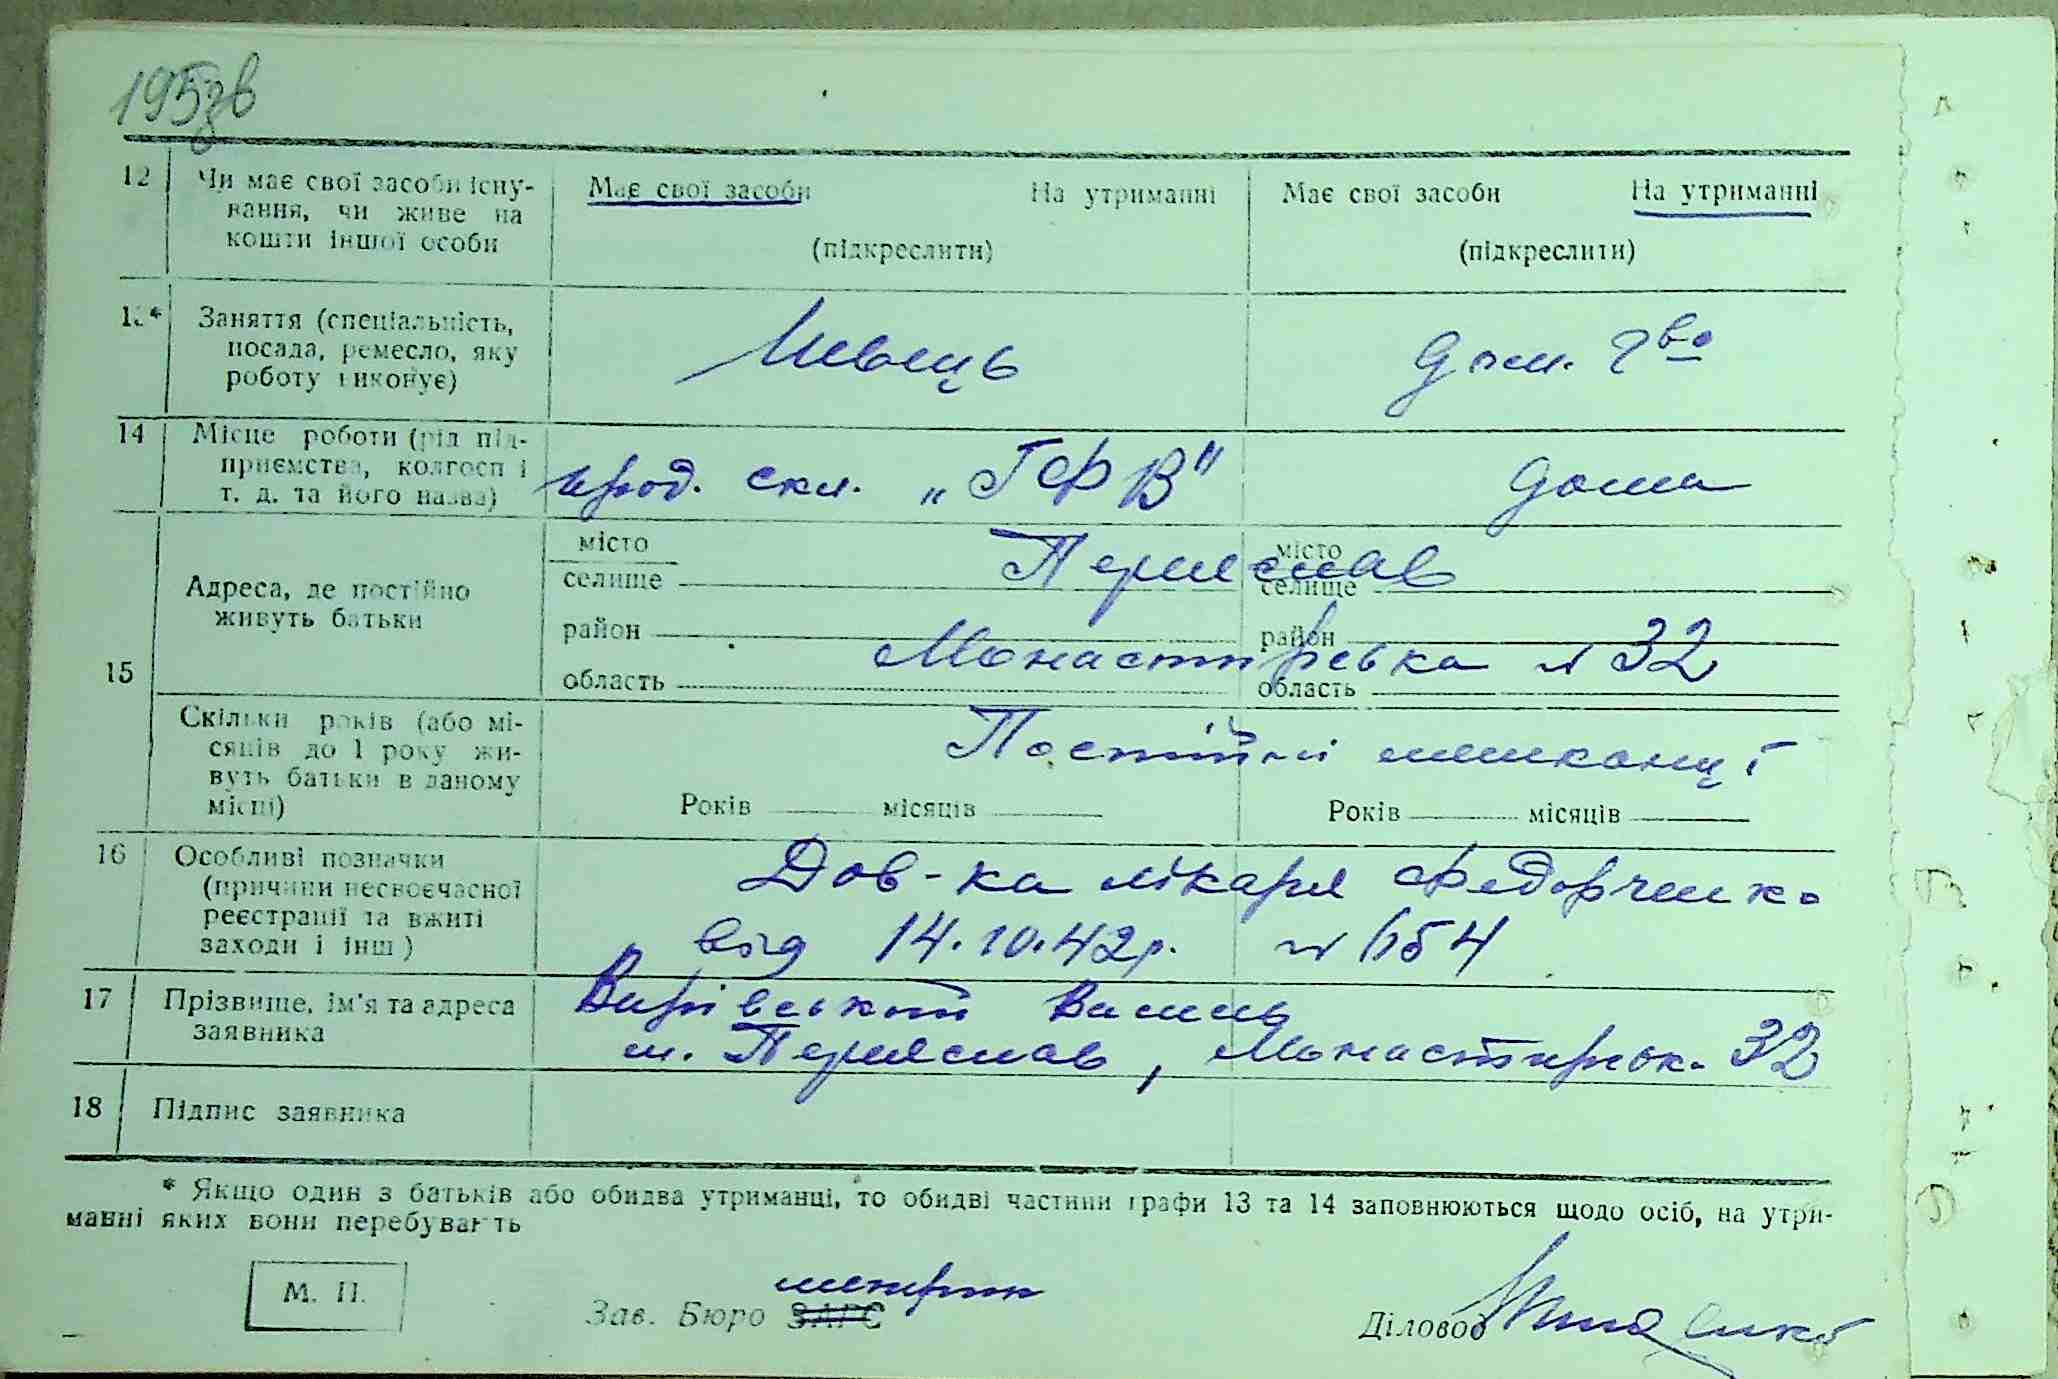 195зв
12 Чи має свої засоби існу- Має свої засоби На утриманні Має свої засоби На утриманні
вання, чи живе на
кошти іншої особи (підкреслити) (підкреслити)
13* Заняття (спеціальність,
посада, ремесло, яку Швець Дом. г-во
роботу виконує)
14 Місце роботи (рід під-
приємства, колгосп і прод. скл. „ГФВ" дома
т. д. та його назва)
місто Переяслав місто
Адреса, де постійно селище селище
живуть батьки
район район
15 Монастирська № 32
область область
Скільки років (або мі-
сяців до 1 року жи- Постійні мешканці
вуть батьки в даному
місці) Років місяців Років місяців
16 Особливі позначки Дов-ка лікаря Федорченко
(причини несвоєчасної
реєстрації та вжиті від 14.10.42р. № 654
заходи і інш)
17 Прізвище, ім'я та адреса Василь
заявника м. Переяслав, Монастирськ. 32
18 Підпис заявника
* Якщо один з батьків або обидва утриманці, то обидві частини графи 13 та 14 заповнюються щодо осіб, на утри-
манні яких вони перебувають
М. П. Зав. Бюро ЗАГС метрик Діловод